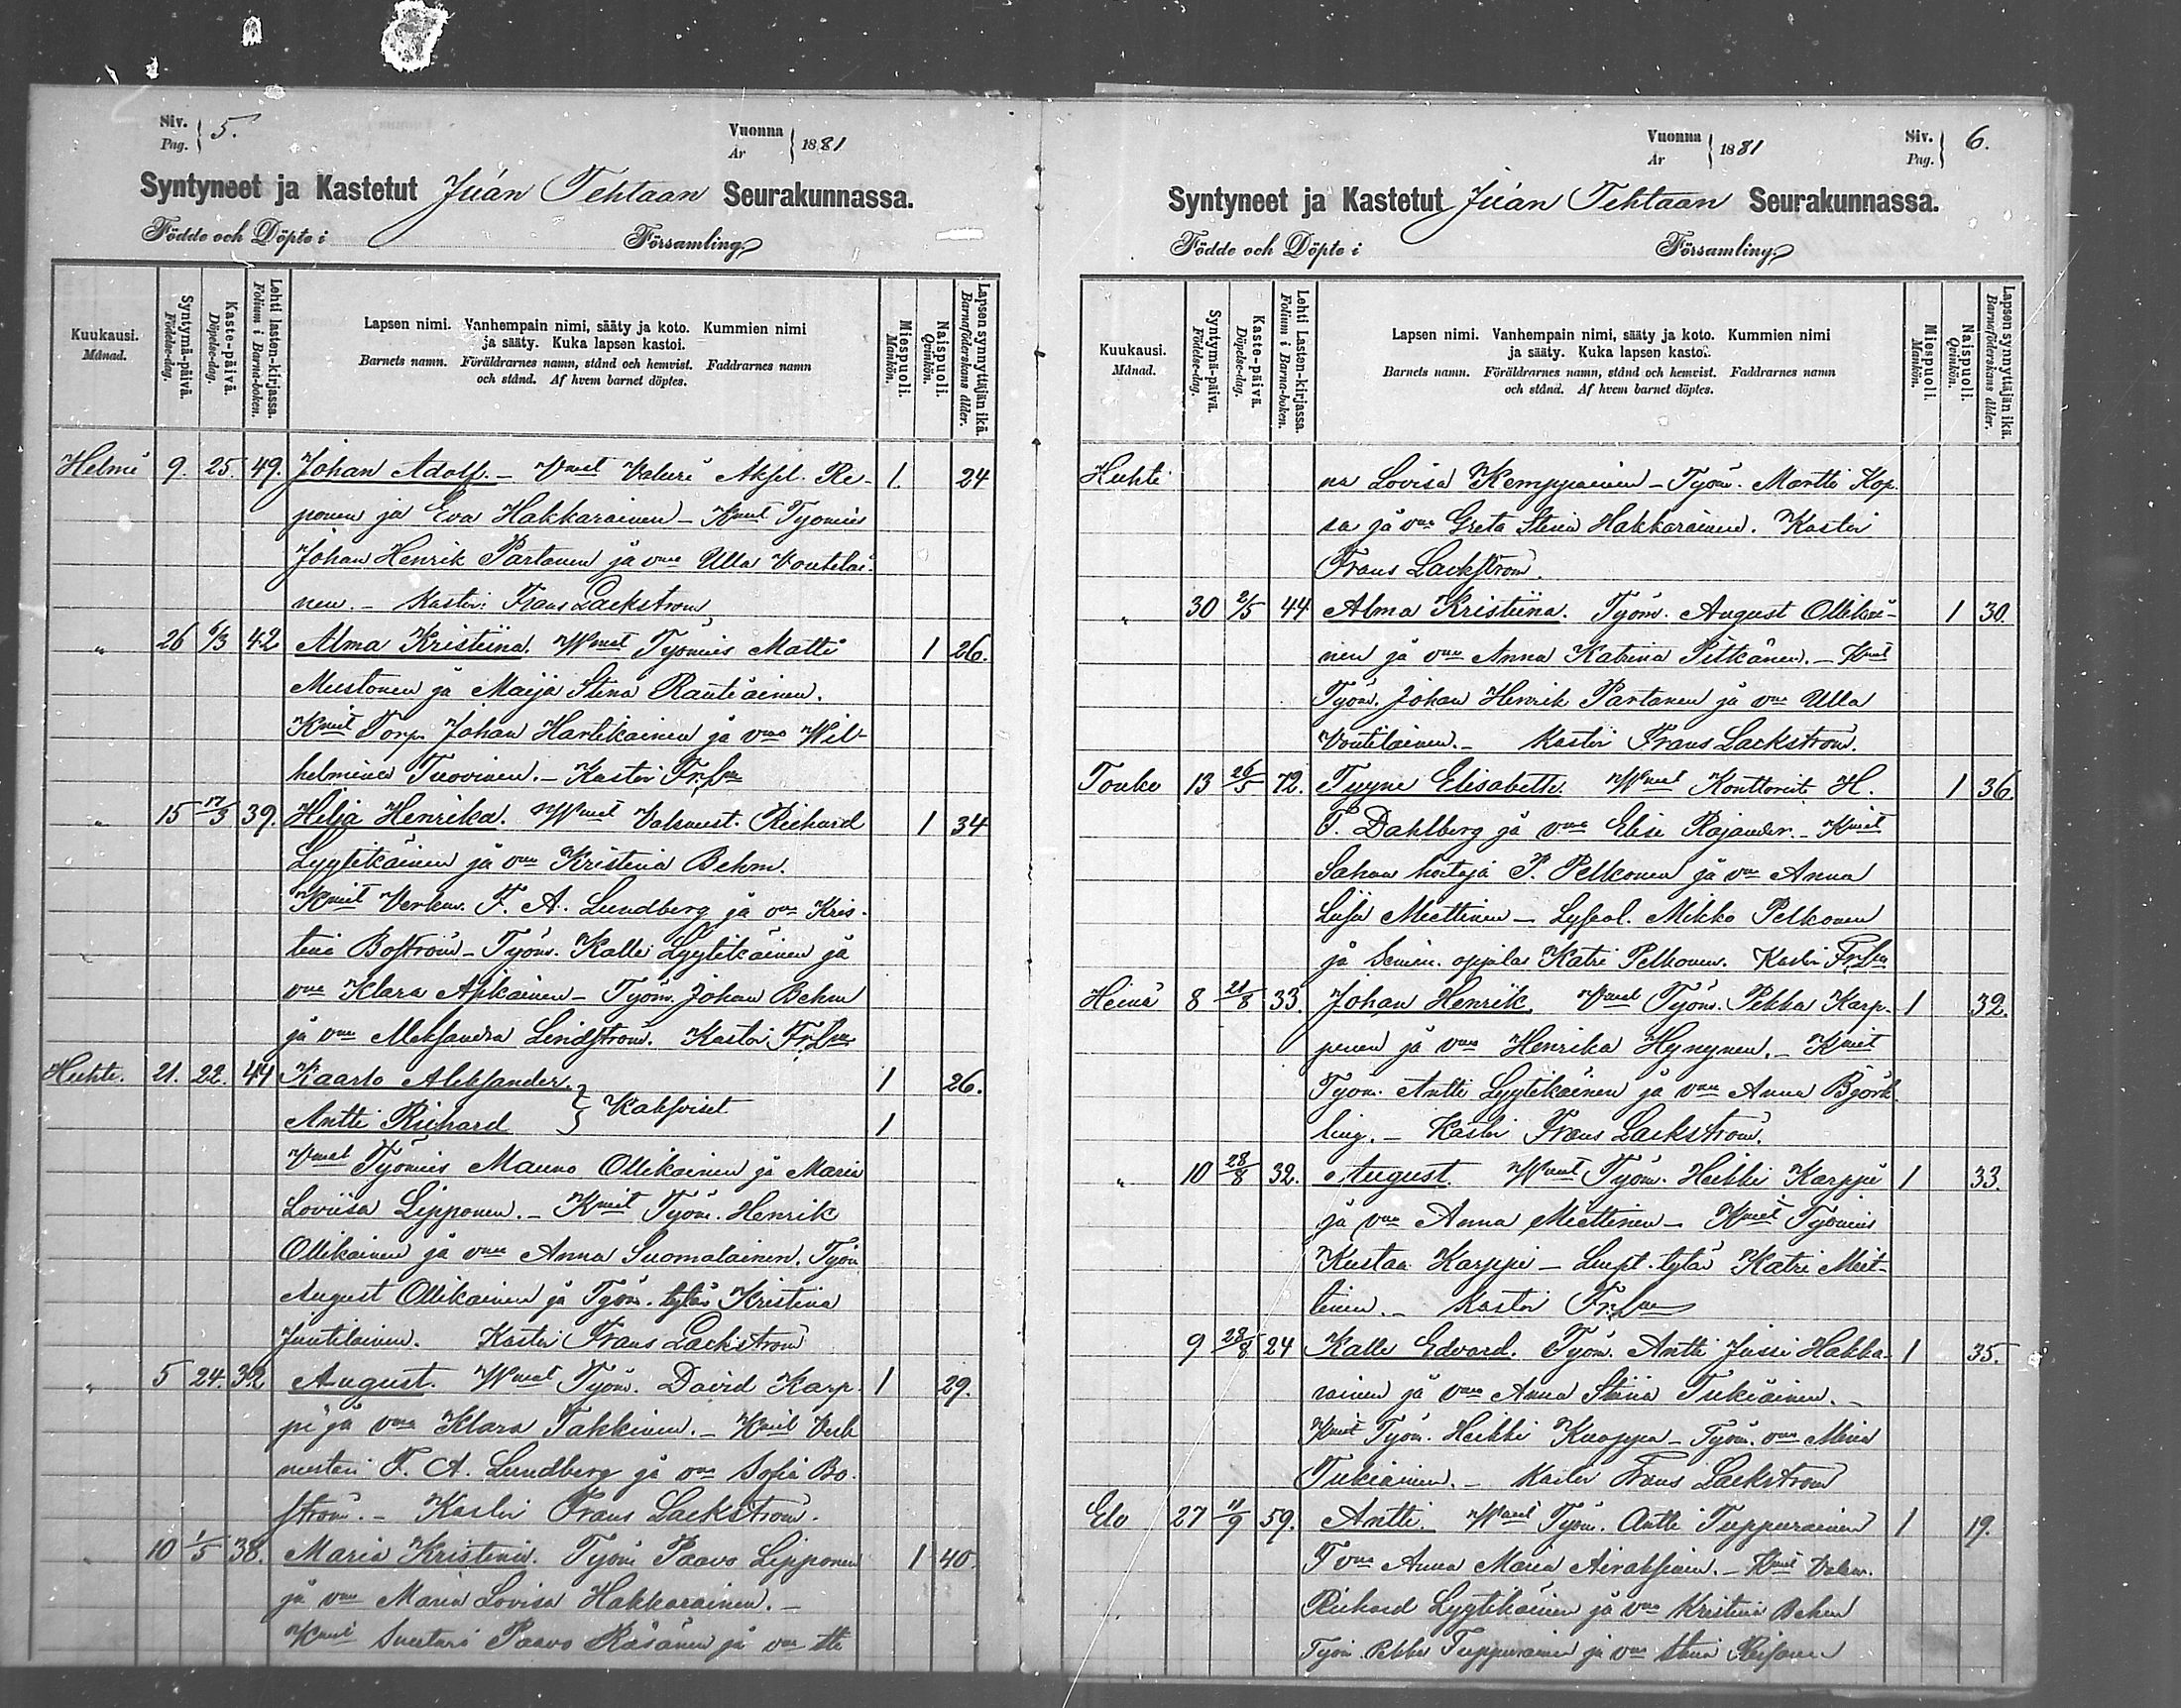 Siv. Pag. } 5.
Vuonna År } 1881
Syntyneet ja Kastetut Juán Tehtaan Seurakunnassa.
Födde och Döpte i Församling.
Kuukausi. Månad.
Syntymä-päivä. Födelse-dag.
Kaste-päivä. Döpelse-dag.
Lehti lasten-kirjassa. Folium i Barna-boken.
Lapsen nimi. Vanhempain nimi, sääty ja koto. Kummien nimi
ja sääty. Kuka lapsen kastoi.
Barnets namn. Föräldrarnes namn, stånd och hemvist. Faddrarnes namn
och stånd. Af hvem barnet döptes.
Miespuoli. Mankön.
Naispuoli. Qvinkön.
Lapsen synnyttäjän ikä. Barnaföderskans ålder.
Helmi 9. 25. 49. Johan Adolf. - Vmat Valuri Aksel Re- 1. 24
ponen ja Eva Hakkarainen - Kmit Työmies
Johan Henrik Partanen ja vmo Ulla Voutilai-
nen. - Kastoi: Frans Lackstrom
" 26 6/3 42 Alma Kristiina. Wmat Työmies Matti 1 26.
Mustonen ja Maija Stina Rautiainen.
Kmit Torp. Johan Hartikainen ja vmo Wil-
helmina Tuovinen. - Kastoi Fr. Lm
" 15 17/3 39. Hilja Henrika. Wmat Valumest. Richard 1 34
Lyytikäinen ja vmo Kristina Behm.
Kmit Verkm. F. A. Lundberg ja vmo Kris-
tina Boström - Työm. Kalle Lyytikäinen ja
vmo Klara Apkainen - Työm. Johan Behm
ja vmo Aleksandra Lindström. Kastoi Fr. Lm
Huhti. 21. 22. 44 Kaarlo Aleksander. 1 26.
Antti Richard } Kaksoiset 1
Vmat Työmies Mauno Ollikainen ja Maria
Loviisa Lipponen. - Kmit Työm. Henrik
Ollikainen ja vmo Anna Suomalainen. Työm
August Ollikainen ja Työm. tytär Kristina
Juutilainen. Kastoi Frans Lackstrom
" 5 24. 32 August. Wmat Työm. David Karp- 1 29.
pi ja vmo Klara Takkinen. - Kmit Verk
mestari F. A. Lundberg ja vmo Sofia Bo-
ström. - Kastoi Frans Lackström.
" 10 1/5 38. Maria Kristina. Työm Paavo Lipponen 1 40.
ja vmo Maria Lovisa Hakkarainen. -
Kmit Suutari Paavo Räsänen ja vmo He
Vuonna År } 1881
Siv. Pag. } 6.
Syntyneet ja Kastetut Juán Tehtaan Seurakunnassa.
Födde och Döpte i Församling.
Kuukausi. Månad.
Syntymä-päivä. Födelse-dag.
Kaste-päivä. Döpelse-dag.
Lehti Lasten-kirjassa. Folium i Barna-boken.
Lapsen nimi. Vanhempain nimi, sääty ja koto. Kummien nimi
ja sääty. Kuka lapsen kastoi.
Barnets namn. Föräldrarnes namn, stånd och hemvist. Faddrarnes namn
och stånd. Af hvem barnet döptes.
Miespuoli. Mankön.
Naispuoli. Qvinkön.
Lapsen synnyttäjän ikä. Barnaföderskans ålder.
Huhti na Lovisa Kemppainen - Työm. Martti Kop
sa ja vmo Greta Stina Hakkarainen. Kastoi
Frans Lackström.
" 30 2/5 44 Alma Kristiina. Työm. August Ollikai- 1 30.
nen ja vmo Anna Katrina Pitkänen. - Kmit
Työm. Johan Henrik Partanen ja vmo Ulla
Voutilainen. - Kastoi Frans Lackström.
Touko 13 26/5 72. Tyyne Elisabetti. Wmat Konttoristi H. 1 36.
P. Dahlberg ja vmo Elise Rajander. - Kmit
Sahan hoitaja P. Pelkonen ja vmo Anna
Liisa Miettinen - Lyseol. Mikko Pelkonen
ja Semin. oppilas Katri Pelkonen. Kastoi Fr. Lm
Heinä 8 21/8 33. Johan Henrik. Vmat Työm. Pekka Karp- 1 32.
pinen ja vmo Henrika Hynynen. - Kmit
Työm. Antti Lyytikäinen ja vmo Anna Björk-
ling. - Kastoi Frans Lackström.
" 10 28/8 32. August. Wmat Työm. Heikki Karppi 1 33.
ja vmo Anna Miettinen - Kmit Työmies
Kustaa Karppi - Lampt. tytär Katri Miet-
tinen. - Kastoi Fr. Lm
9 28/8 24 Kalle Edvard. Työm. Antti Jussi Hakka- 1 35.
rainen ja vmo Anna Stiina Tukiainen. -
Kmit Työm. Heikki Kuoppa - Työm. vmo Miina
Tukiainen. - Kastoi Frans Lackstrom
Elo 27 11/9 59. Antti. Wmat Työm. Antti Tuppurainen 1 19.
J vmo Anna Maria Airaksinen. - Kmit Valum.
Richard Lyytikäinen ja vmo Kristina Behm
Työm. Pekka Tuppurainen ja vmo Stina